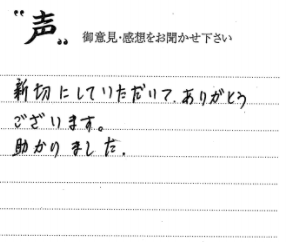 〝声〟 御意見・感想をお聞かせ下さい
新切にしていただいて、ありがとう
ございます。
助かりました。